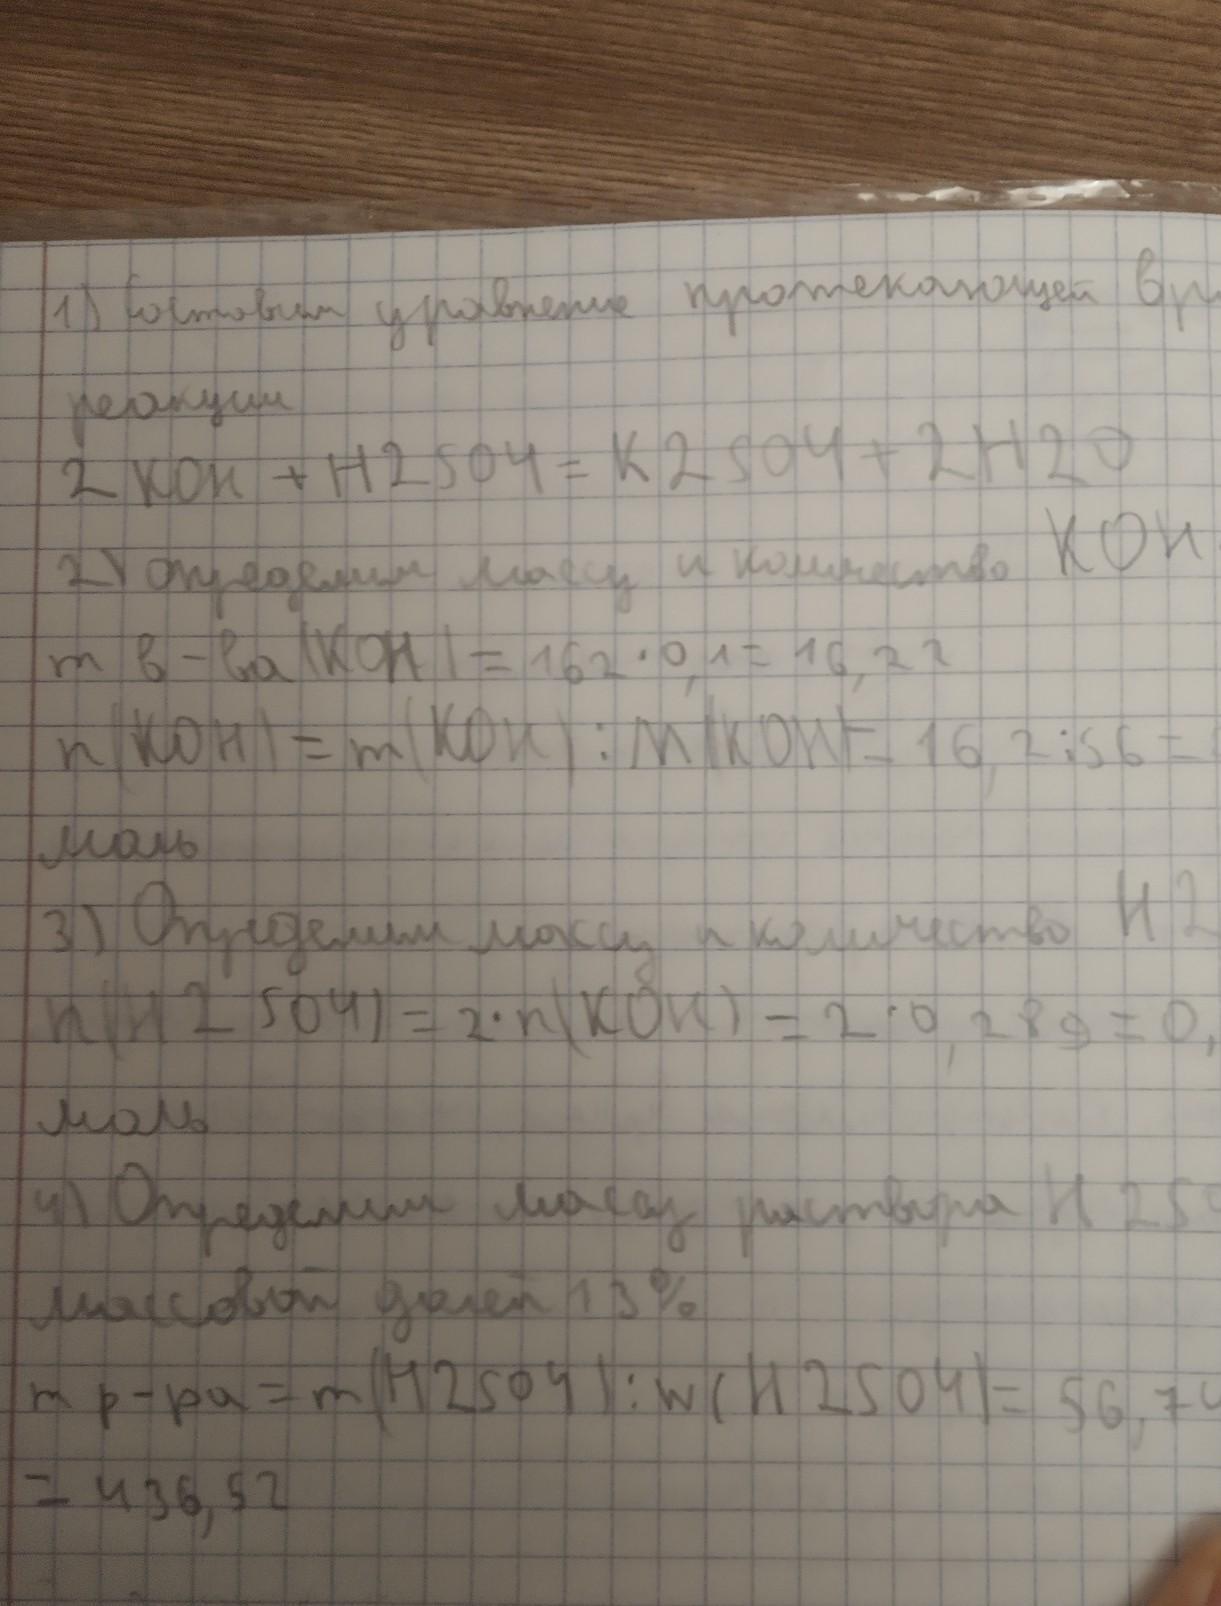 1) Составим уравнение протекающей в р
реакции
2KOH + H2SO4 = K2SO4 + 2H2O
2) Определим массу и количество KOH
m в-ва (KOH) = 162 · 0,1 = 16,2 г
n(KOH) = m(KOH) : M(KOH) = 16,2 : 56 =
моль
3) Определим массу и количество H2
n(H2SO4) = 2 · n(KOH) = 2 · 0,289 = 0,
моль
4) Определим массу раствора H2S
массовой долей 13%
m р-ра = m(H2SO4) : w(H2SO4) = 56,74
= 436,5г